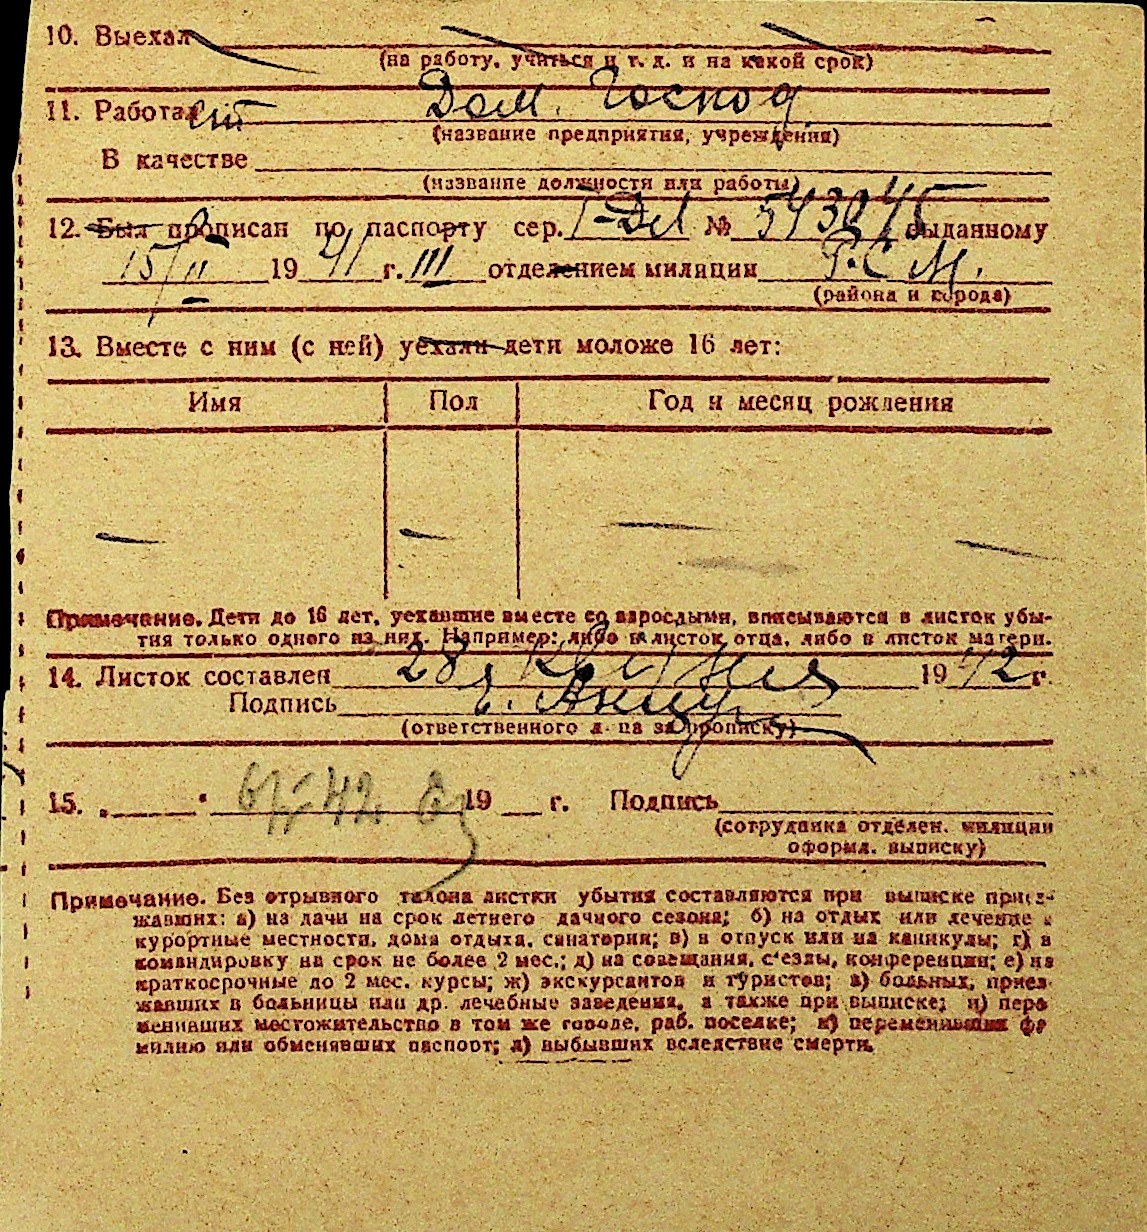 10. Выехал
(на работу, учиться и т. д. и на какой срок)
11. Работает Дом. Господ.
(название предприятия, учреждения)
В качестве
(название должности или работы)
12. Был прописан по паспорту сер. № 543045 выданному
15/II 1941 г. III отделением милиции Р.С.М.
(района и города)
13. Вместе с ним (с ней) уехали дети моложе 16 лет:
Имя Пол Год и месяц рождения
Примечание. Дети до 16 лет, уехавшие вместе со взрослыми, вписываются в листок убы-
тия только одного из них. Например: либо в листок отца, либо в листок матери.
14. Листок составлен 28 1942 г.
Подпись
(ответственного л-ца за прописку)
15. 19 г. Подпись
(сотрудника отделен. милиции
оформл. выписку)
Примечание. Без отрывного талона листки убытия составляются при выписке приез-
жавших: а) на дачи на срок летнего дачного сезона; б) на отдых или лечение в
курортные местности, дома отдыха, санатории; в) в отпуск или на каникулы; г) в
командировку на срок не более 2 мес.; д) на совещания, с'езды, конференции; е) на
краткосрочные до 2 мес. курсы; ж) экскурсантов и туристов; з) больных, приез-
жавших в больницы или др. лечебные заведения, а также при выписке; и) пере
менивших местожительство в том же городе, раб. поселке; к) переменивших фа
милию или обменявших паспорт; л) выбывших вследствие смерти.